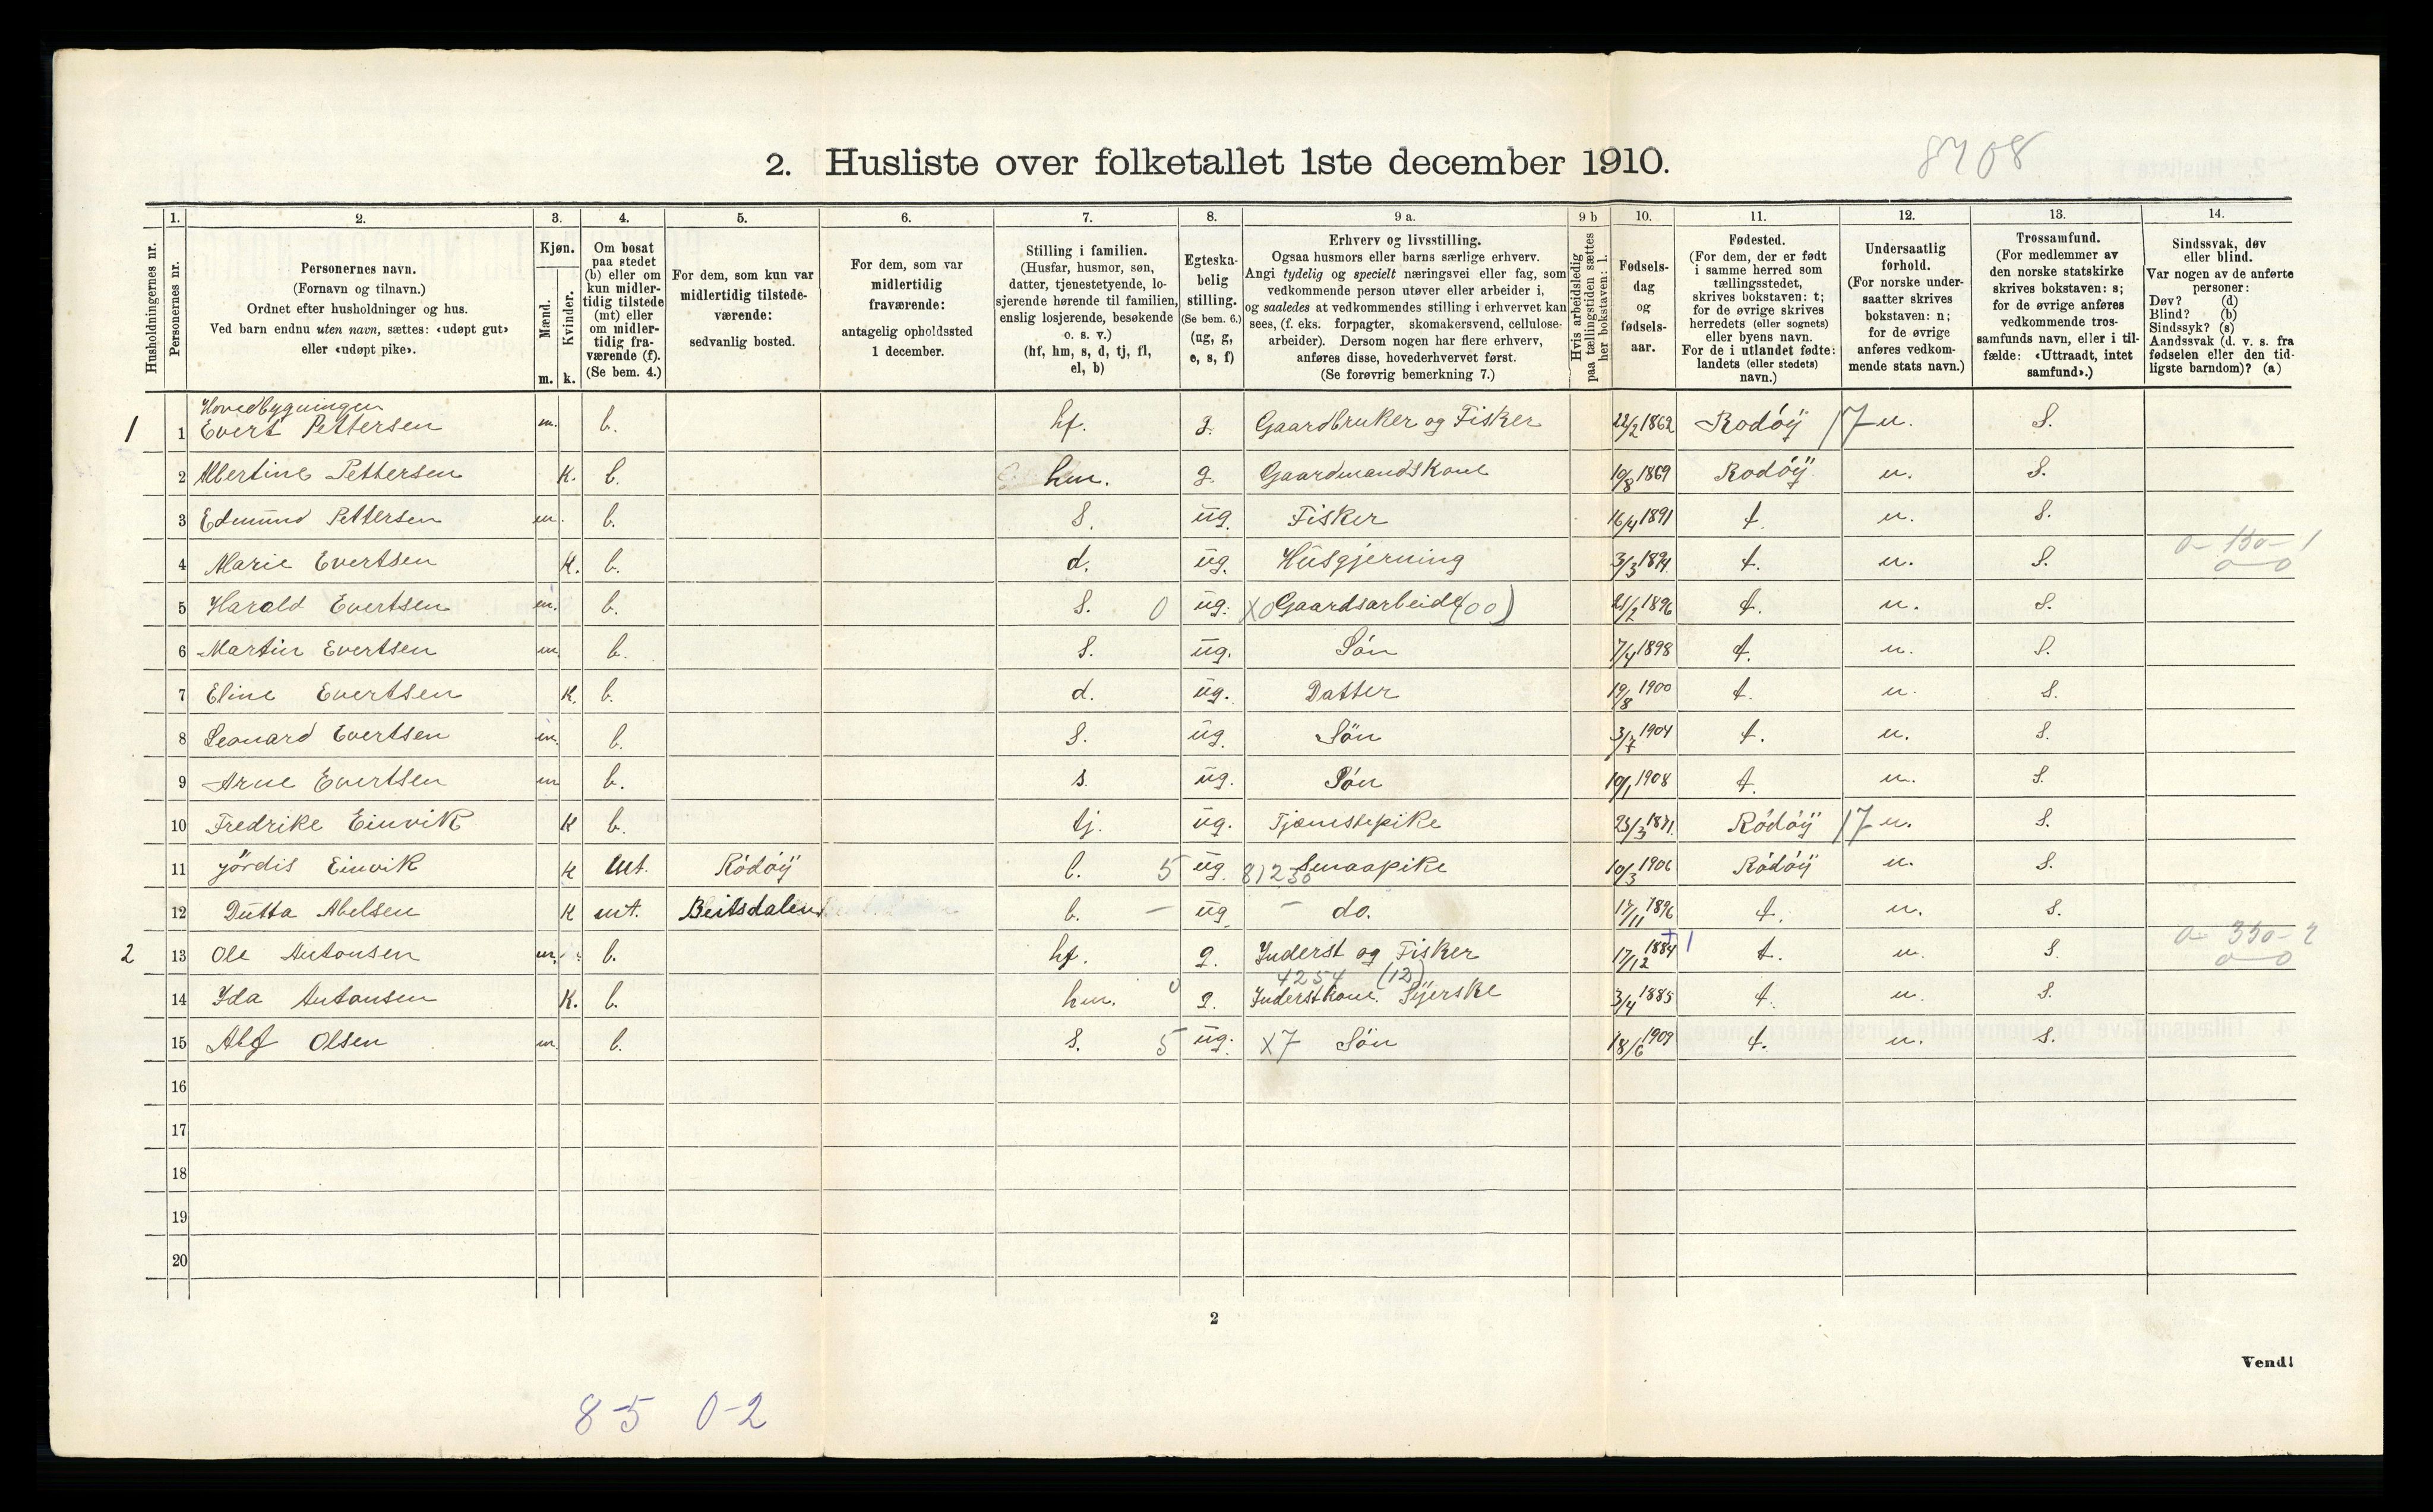 8708
2. Husliste over folketallet 1ste december 1910.
Husholdningernes nr.
1.
Personernes nr.
2.
Personernes navn.
(Fornavn og tilnavn.)
Ordnet efter husholdninger og hus.
Ved barn endnu uten navn, sættes: «udøpt gut»
eller «udøpt pike».
3.
Kjøn.
Mænd.
Kvinder.
m. k.
4.
Om bosat
paa stedet
(b) eller om
kun midler-
tidig tilstede
(mt) eller
om midler-
tidig fra-
værende (f).
(Se bem. 4.)
5.
For dem, som kun var
midlertidig tilstede-
værende:
sedvanlig bosted.
6.
For dem, som var
midlertidig
fraværende:
antagelig opholdssted
1 december.
7.
Stilling i familien.
(Husfar, husmor, søn,
datter, tjenestetyende, lo-
sjerende hørende til familien,
enslig losjerende, besøkende
o. s. v.)
(hf, hm, s, d, tj, fl,
el, b)
8.
Egteska-
belig
stilling.
(Se bem. 6.)
(ug, g,
e, s, f)
9 a.
Erhverv og livsstilling.
Ogsaa husmors eller barns særlige erhverv.
Angi tydelig og specielt næringsvei eller fag, som
vedkommende person utøver eller arbeider i,
og saaledes at vedkommendes stilling i erhvervet kan
sees, (f. eks. forpagter, skomakersvend, cellulose-
arbeider). Dersom nogen har flere erhverv,
anføres disse, hovederhvervet først.
(Se forøvrig bemerkning 7.)
9 b
Hvis arbeidsledig
paa tællingstiden sættes
her bokstaven: l.
10.
Fødsels-
dag
og
fødsels-
aar.
11.
Fødested.
(For dem, der er født
i samme herred som
tællingsstedet,
skrives bokstaven: t;
for de øvrige skrives
herredets (eller sognets)
eller byens navn.
For de i utlandet fødte:
landets (eller stedets)
navn.)
12.
Undersaatlig
forhold.
(For norske under-
saatter skrives
bokstaven: n;
for de øvrige
anføres vedkom-
mende stats navn.)
13.
Trossamfund.
(For medlemmer av
den norske statskirke
skrives bokstaven: s;
for de øvrige anføres
vedkommende tros-
samfunds navn, eller i til-
fælde: «Uttraadt, intet
samfund».)
14.
Sindssvak, døv
eller blind.
Var nogen av de anførte
personer:
Døv? (d)
Blind? (b)
Sindssyk? (s)
Aandssvak (d. v. s. fra
fødselen eller den tid-
ligste barndom)? (a)
Hovedbygningen
1 1 Evert Pettersen m. b. hf. g. Gaardbruker og Fisker 22/2 1862 Rodöÿ 17 n. S.
2 Albertine Pettersen K. b. hm. g. Gaardmandskone 10/8 1869 Rodöÿ n. S.
3 Edmund Pettersen m. b. S. ug. Fisker 16/4 1891 t. n. S.
4 Marie Evertsen K. b. d. ug. Husgjerning 3/3 1894. t. n. S. 0-150-1
0 0
5 Harald Evertsen m. b. S. 0 ug. X0 Gaardsarbeide (00) 21/2 1896 t. n. S.
6 Martin Evertsen m. b. S. ug. Sön 7/4 1898 t. n. S.
7 Eline Evertsen K. b. d. ug. Datter 19/8 1900 t. n. S.
8 Leonard Evertsen m. b. S. ug. Sön 3/7 1904 t. n. S.
9 Arne Evertsen m b. s. ug. Sön 10/1 1908 t. n. S.
10 Fredrike Einvik K b. tj. ug. Tjænestepike 23/3 1871. Rödöÿ 17 n. S.
11 Jördis Einvik K mt. Rödöÿ b. 5 ug. 81250 Smaapike 10/3 1906 Rödöÿ n. S.
12 Dutta Abelsen K mt. Beitsdalen b. - ug. - do. 17/11 1896 t. n. S.
2 13 Ole Antonsen m. b. hf. g. Inderst og Fisker 17/12 1884 + 1 t. n. S. 0-350-2
0 0
4254 (12)
14 Ida Antonsen K. b. hm. 0 g. Inderstkone. Syerske 3/4 1885 t. n. S.
15 Alf Olsen m. b. S. 5 ug. X7 Sön 18/6 1909 t. n. S.
16
17
18
19
20
2
Vend!
8-5 0-2